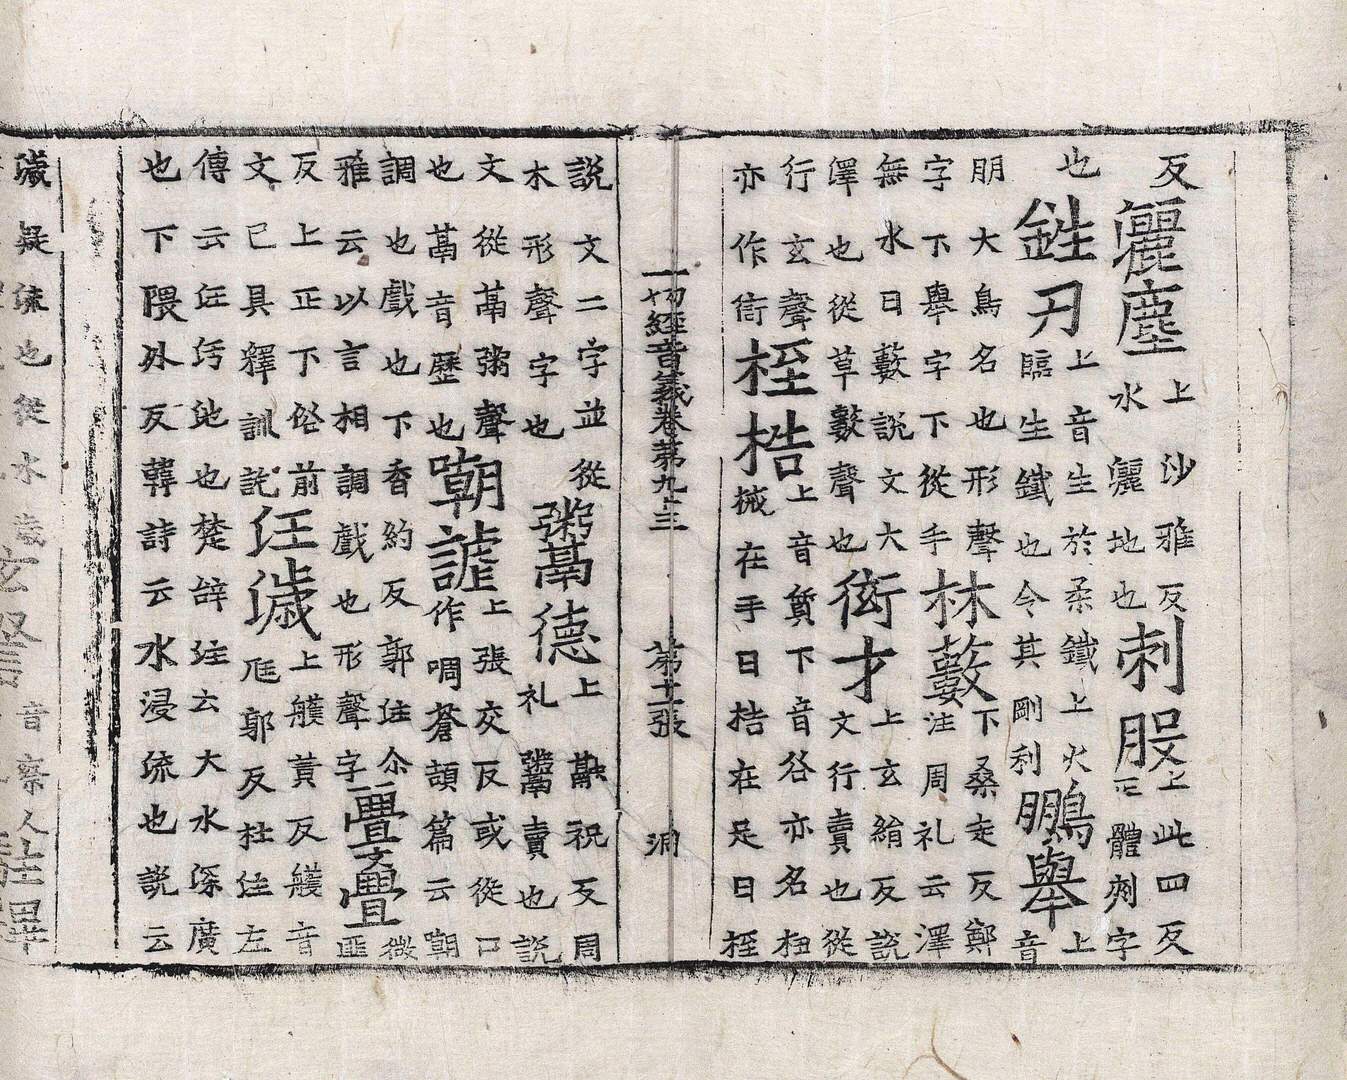 反
灑塵
上沙雅反
水灑地也
刺股
上此四反
正體刾字
也
鉎刃
上音生於柔鐵上火
臨生鐵也令其剛利
鵬舉
上
音
朋大鳥名也形聲
字下舉字下從手
林藪
下桑走反鄭
注周礼云澤
無水曰藪說文大
澤也從草藪聲也
衒才
上玄絹反說
文行賣也從
行玄聲
亦作衒
桎梏
上音質下音谷亦名杻
械在手曰梏在足曰桎
一切經音義卷第九十三　第十二張　洞
說文二字並從
木形聲字也
粥鬲德
上融祝反周
礼鬻賣也說
文從鬲粥聲
也鬲音歷也
嘲謔
上張交反或從口
作啁蒼頡篇云嘲
調也戲也下香約反郭注尒
雅云以言相調戲也形聲字
亹亹
微
匪
反上正下俗前
文已具釋訓訖
汪濊
上蠖黃反蠖音
尫郭反杜注左
傳云汪污池也楚辞注云大水深廣
也下隈外反韓詩云水浸流也說云
濊疑流也從水歲
音察人